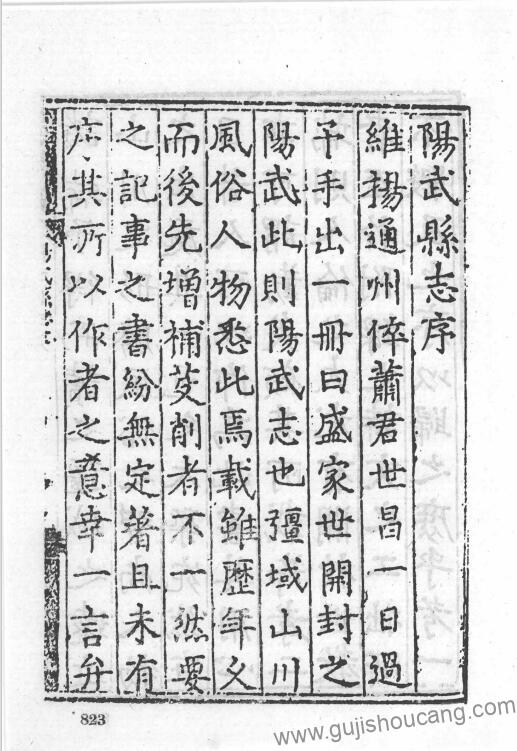 陽武縣志序
維揚通州倅蕭君世昌一日過
予手出一冊曰盛家世開封之
陽武此則陽武志也彊域山川
風俗人物悉此焉載雖歷年乂
而後先增補芟削者不一然要
之記事之書紛無定著且未有
序其所以作者之意幸一言弁
823
www.gujishoucang.com